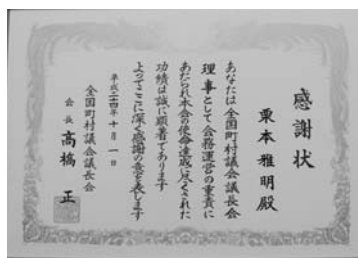 感謝状
栗本雅明殿
あなたは全国町村議会議長会
理事として会務運営の重責に
あたられ本会の使命達成に尽くされた
功績は誠に顕著であります
よってここに深く感謝の意を表します
平成二十四年十月一日
全国町村議会議長会
会長 高橋正